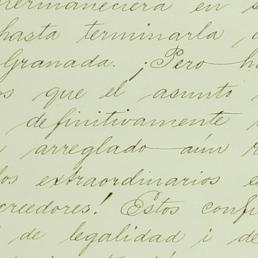 permaneciera en s
hasta terminarla,
Granada. ¡Pero h
os que el asunto
definitivamente
arreglado aún
los extraordinarios e
creedores! Estos confi
de legalidad i de